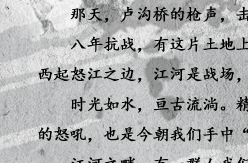 那天，卢沟桥的枪声，击
八年抗战，有这片土地上
西起怒江之边，江河是战场，
时光如水，亘古流淌。精
的怒吼，也是今朝我们手中“
江河之畔，有一群人